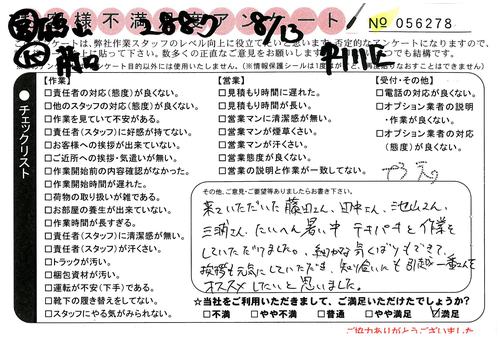 お客様不満足度アンケート
2887 8/13
№ 056278
このアンケートは、弊社作業スタッフのレベル向上に役立てたいと思います。否定的なアンケートになりますので、
に貼って下さい。数多くの正直なご意見をお願いします。
アンケート目的以外には使用いたしません。
チェックリスト
【作業】
□責任者の対応(態度)が良くない。
□他のスタッフの対応(態度)が良くない。
□作業を見ていて不安がある。
□責任者(スタッフ)に好感が持てない。
□お客様への挨拶が出来ていない。
□ご近所への挨拶・気遣いが無い。
□作業開始前の内容確認がなかった。
□作業開始時間が遅れた。
□荷物の取り扱いが雑である。
□お部屋の養生が出来ていない。
□作業時間が長すぎる。
□責任者(スタッフ)に清潔感が無い。
□責任者(スタッフ)が汗くさい。
□トラックが汚い。
□梱包資材が汚い。
□運転が不安(下手)である。
□靴下の履き替えをしてない。
□スタッフにやる気がみられない。
【営業】
□見積もり時間に遅れた。
□見積もり時間が長い。
□営業マンに清潔感が無い。
□営業マンが煙草くさい。
□営業マンが汗くさい。
□営業態度が良くない。
□営業の説明と作業が一致してない。
【受付・その他】
□電話の対応が良くない。
□オプション業者の説明
・作業が良くない。
□オプション業者の対応
(態度)が良くない。
その他、ご意見・ご要望等ありましたらお書き下さい。
来ていただいた藤田さん、田中さん、池山さん、
三浦さん、たいへん暑い中 テキパキと作業を
していただけました。細かな気くばりもできて、
挨拶も元気にしていただき、知り合いにも引越し一番さんを
オススメしたいと思いました。
☆当社をご利用いただきまして、ご満足いただけたでしょうか?
□不満 □やや不満 □普通 □やや満足 ☑満足
ご協力ありがとうございました